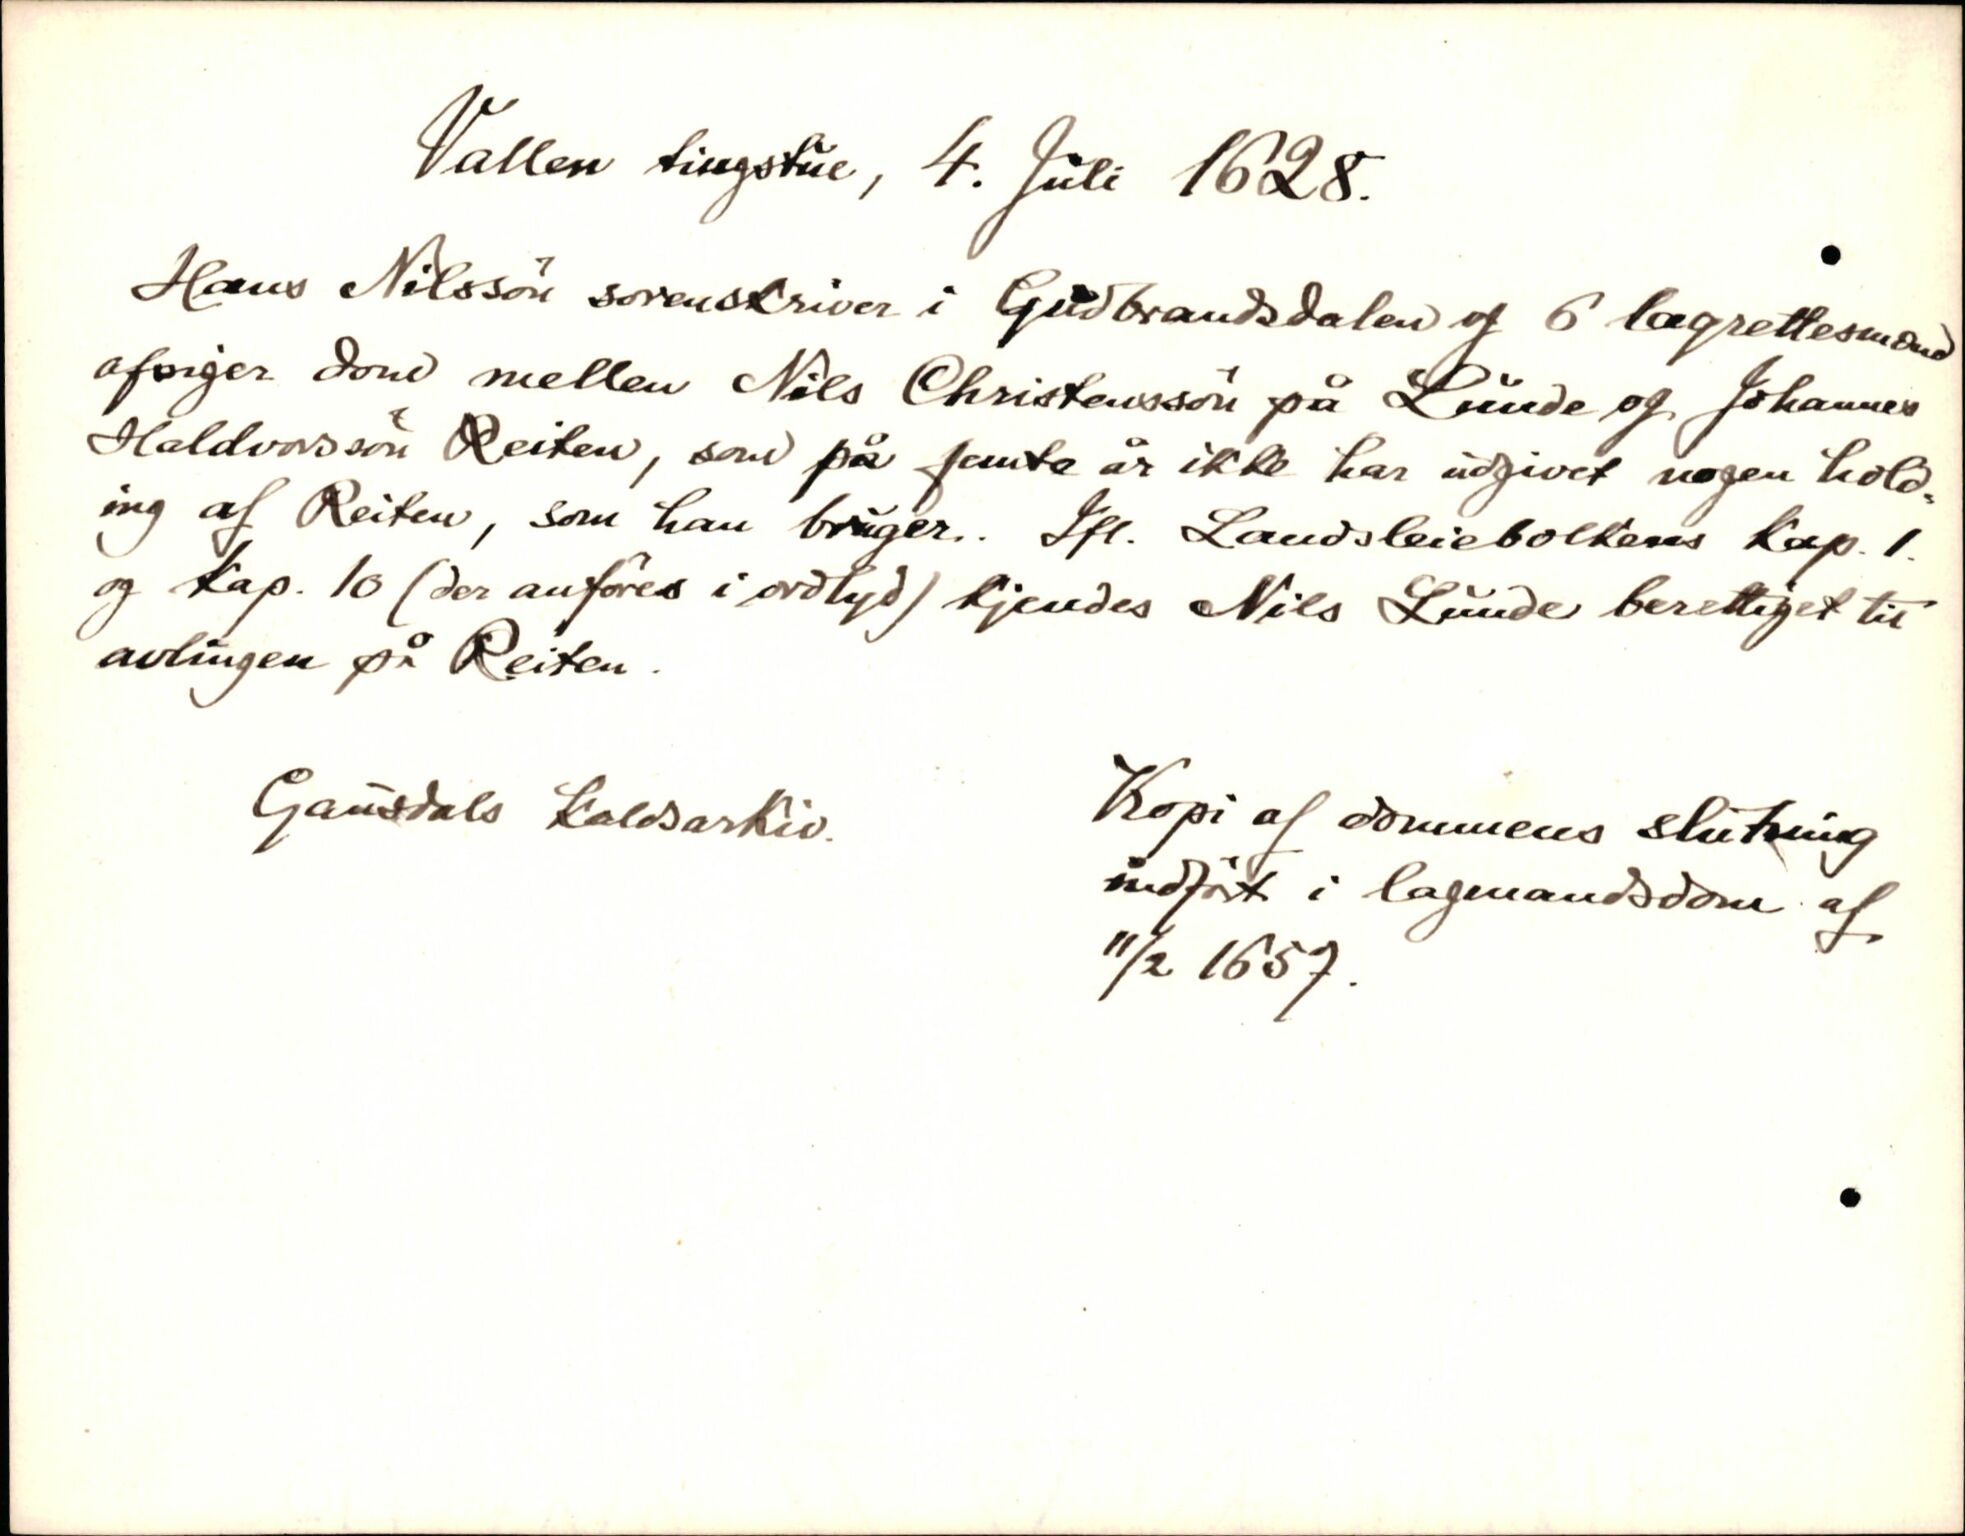 Vallen tingstue, 4. Juli 1628.
Hans Nilssön sorenskriver i Gudbrandsdalen og 6 lagrettesmænd
afsiger dom mellem Nils Christenssön på Lunde og Johannes
Haldvorssön Reiten, som på femte år ikke har udgivet nogen hold-
ing af Reiten, som han bruger. Ifl. Landsleiebolkens Kap. 1.
og Kap. 10 (der anföres i ordlyd) kjendes Nils Lunde berettiget til
avlingen på Reiten.
Gausdals Kaldsarkiv.
Kopi af dommens slutning
indfört i lagmandsdom af
11/2 1657.